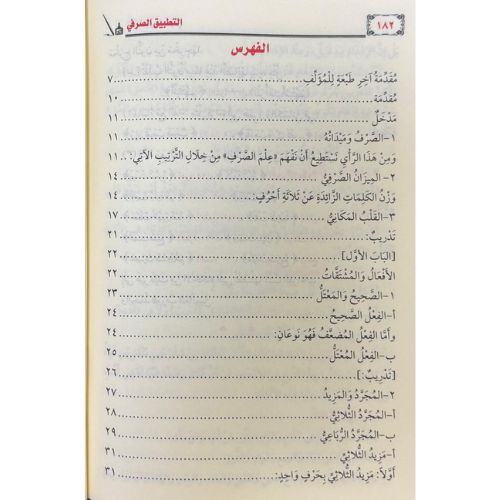 ١٨٢
التطبيق الصرفي
الفهرس
مُقَدِّمَةُ آخِرِ طَبْعَةٍ لِلْمُؤَلِّفِ ........ ٧
مُقدِّمَة ........ ١٠
مَدْخَلٌ ........ ١١
١-الصَّرْفُ وَمَيْدَانُهُ ........ ١١
وَمِنْ هَذَا الرَّأْيِ نَسْتَطِيعُ أَنْ نَفْهَمَ «عِلْمَ الصَّرْفِ» مِنْ خِلَالِ التَّرْتِيبِ الآتِي: .. ١١
٢-المِيزَانُ الصَّرْفِيُّ ........ ١٤
وَزْنُ الكَلِمَاتِ الزَّائِدَةِ عَنْ ثَلَاثَةِ أَحْرُفٍ: ........ ١٤
٣-القَلْبُ المَكَانِيُّ ........ ١٧
تَدْرِيبٌ: ........ ٢١
[البَابُ الأَوَّلُ] ........ ٢٢
الأَفْعَالُ وَالمُشْتَقَّاتُ ........ ٢٢
١-الصَّحِيحُ وَالمُعْتَلُّ ........ ٢٣
أ-الفِعْلُ الصَّحِيحُ ........ ٢٤
وَأَمَّا الفِعْلُ المُضَعَّفُ فَهُوَ نَوعَانِ: ........ ٢٤
ب-الفِعْلُ المُعْتَلُّ ........ ٢٥
[تَدْرِيبٌ:] ........ ٢٦
٢-المُجَرَّدُ وَالمَزِيدُ ........ ٢٧
أ-المُجَرَّدُ الثُّلَاثِيُّ ........ ٢٨
ب-المُجَرَّدُ الرُّبَاعِيُّ ........ ٢٩
أ-مَزِيدُ الثُّلَاثِيِّ ........ ٣١
أَوَّلًا: مَزِيدُ الثُّلَاثِيِّ بِحَرْفٍ وَاحِدٍ: ........ ٣١